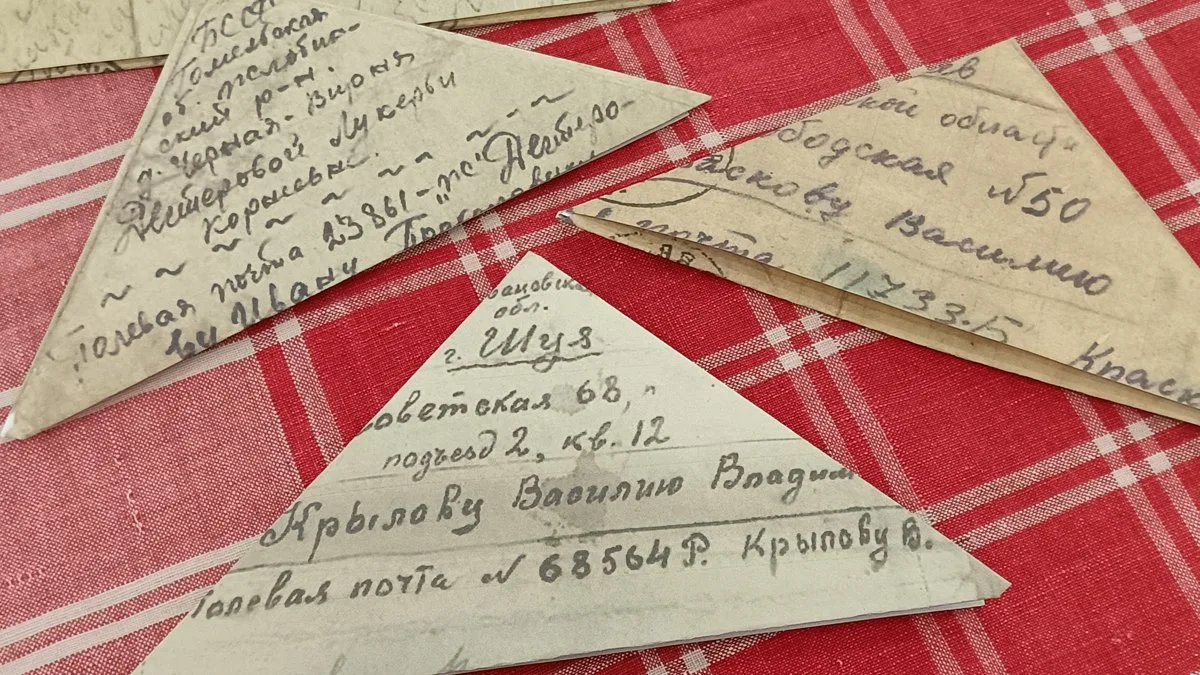 БССР
Гомельская
об. Жлобин-
ский р-н.
д. Черная-Вирня
Дегтеровой Лукерьи
Корнеевне.
Полевая почта 23861-"пс" Дегтеро-
ву Ивану
ев
кой област
бодская №50
аскову Василию
в почта 11733.Б
Краск
вановска
обл.
г. Шуя
оветская 68,
подъезд 2, кв. 12
Крылову Василию Владим
Полевая почта N 68564Р. Крылову В.